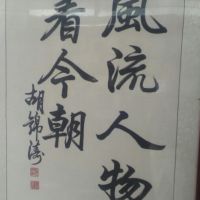 風流人物
看今朝
胡錦濤